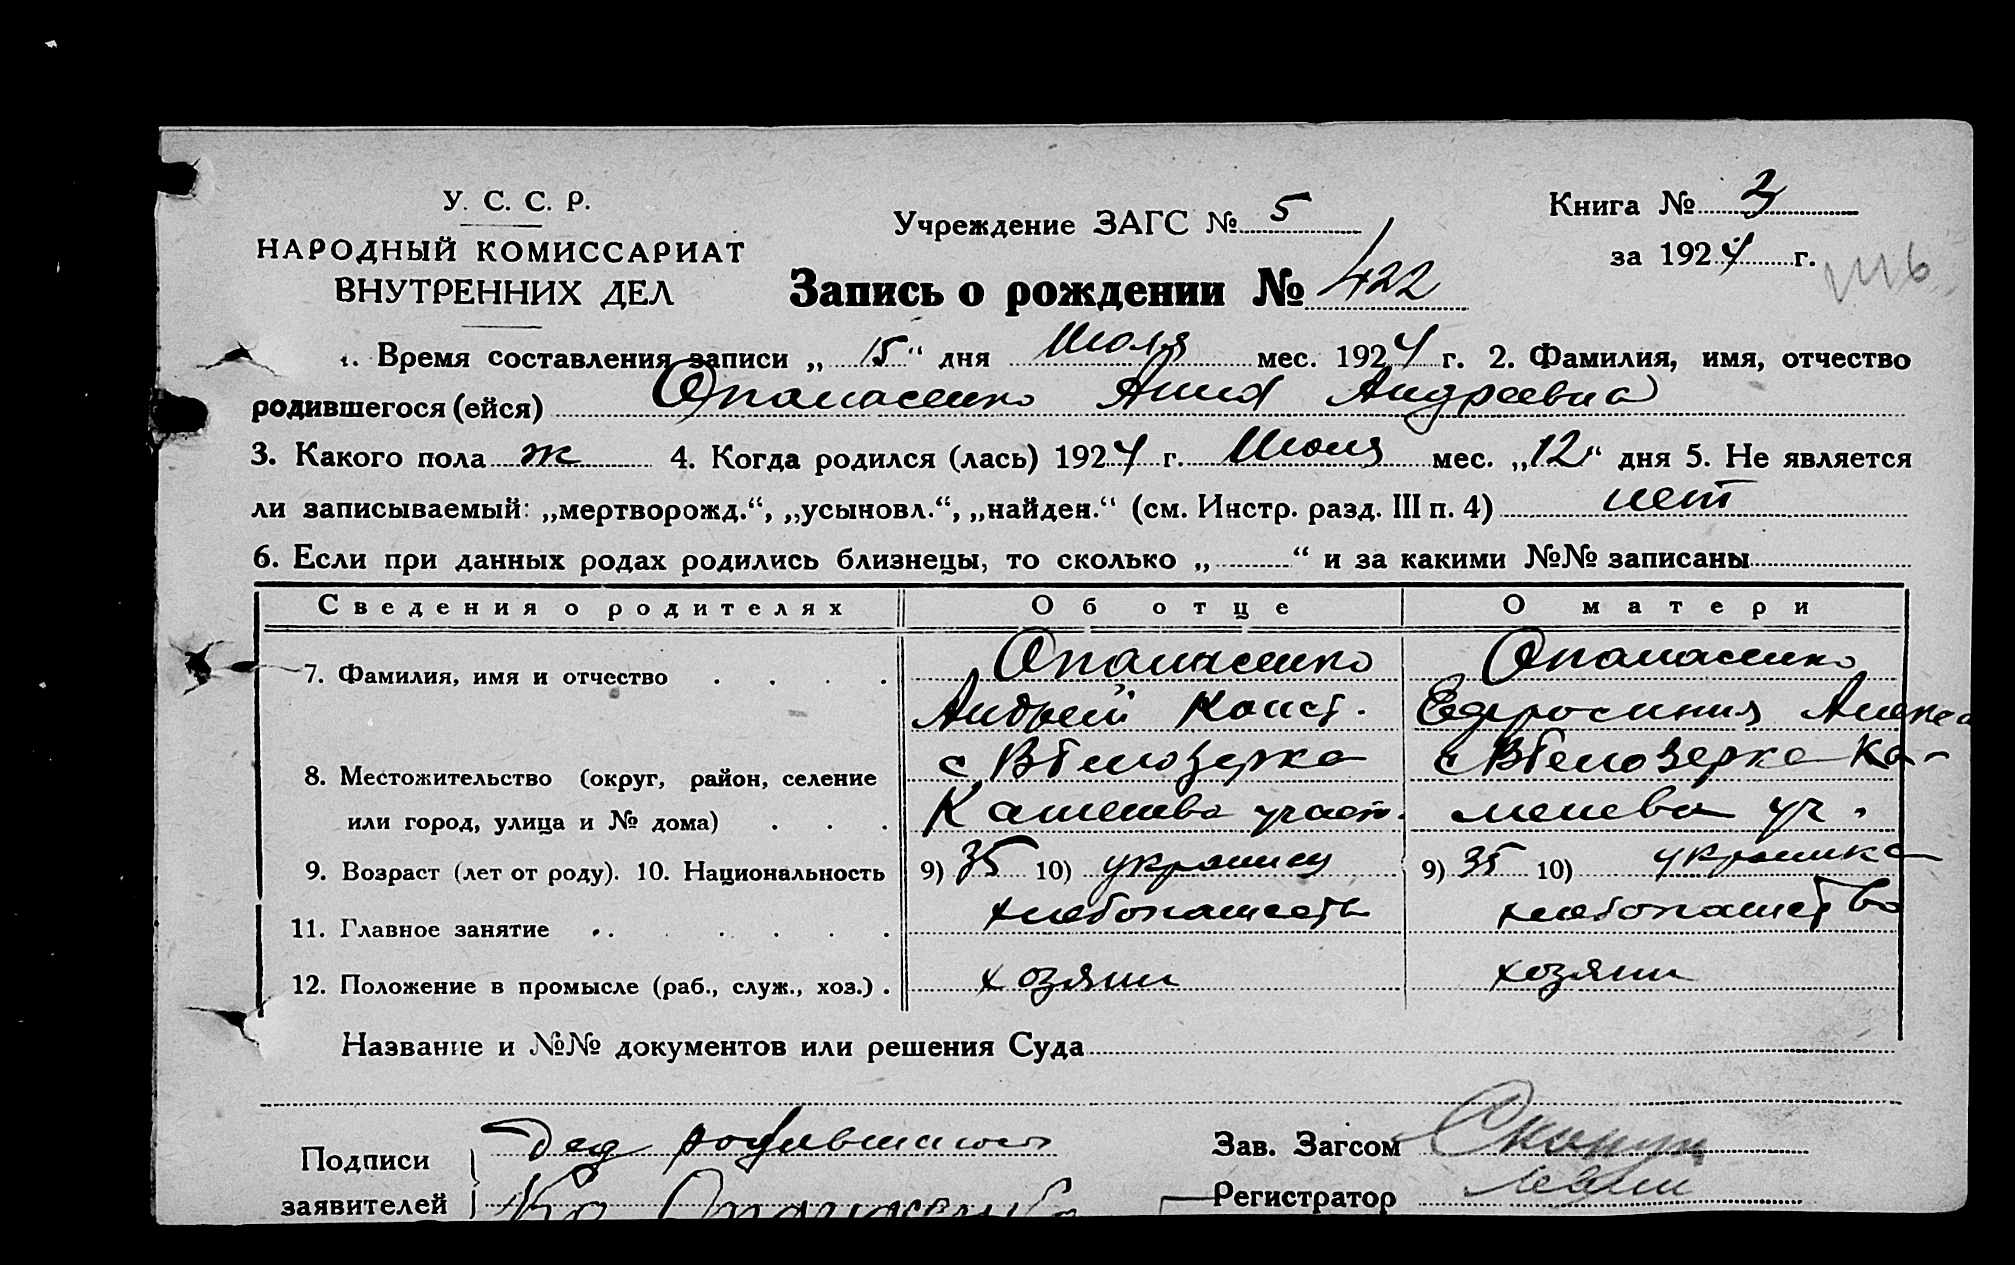 У. С. С. Р.
НАРОДНЫЙ КОМИССАРИАТ
ВНУТРЕННИХ ДЕЛ
Учреждение ЗАГС № 5
Книга № 3
за 1924 г.
Запись о рождении № 422
1. Время составления записи „15“ дня Июля мес. 1924 г. 2. Фамилия, имя, отчество
родившегося (ейся) Опанасенко Анна Андреевна
3. Какого пола ж 4. Когда родился (лась) 1924 г. Июля мес. „12“ дня 5. Не является
ли записываемый: „мертворожд.“, „усыновл.“, „найден.“ (см. Инстр. разд. III п. 4) нет
6. Если при данных родах родились близнецы, то сколько „ “ и за какими №№ записаны
Сведения о родителях Об отце О матери
7. Фамилия, имя и отчество Опанасенко Опанасенко
Андрей Конст. Ефросиния
8. Местожительство (округ, район, селение с. Белозерка с. Белозерка Ка-
или город, улица и № дома) Каменева участ. менева уч.
9. Возраст (лет от роду). 10. Национальность 9) 35 10) украинец 9) 35 10) украинка
11. Главное занятие хлебопашеств хлебопашество
12. Положение в промысле (раб., служ., хоз.) хозяин хозяин
Название и №№ документов или решения Суда
Подписи Дед родившагося Зав. Загсом
заявителей Опанасенко Регистратор